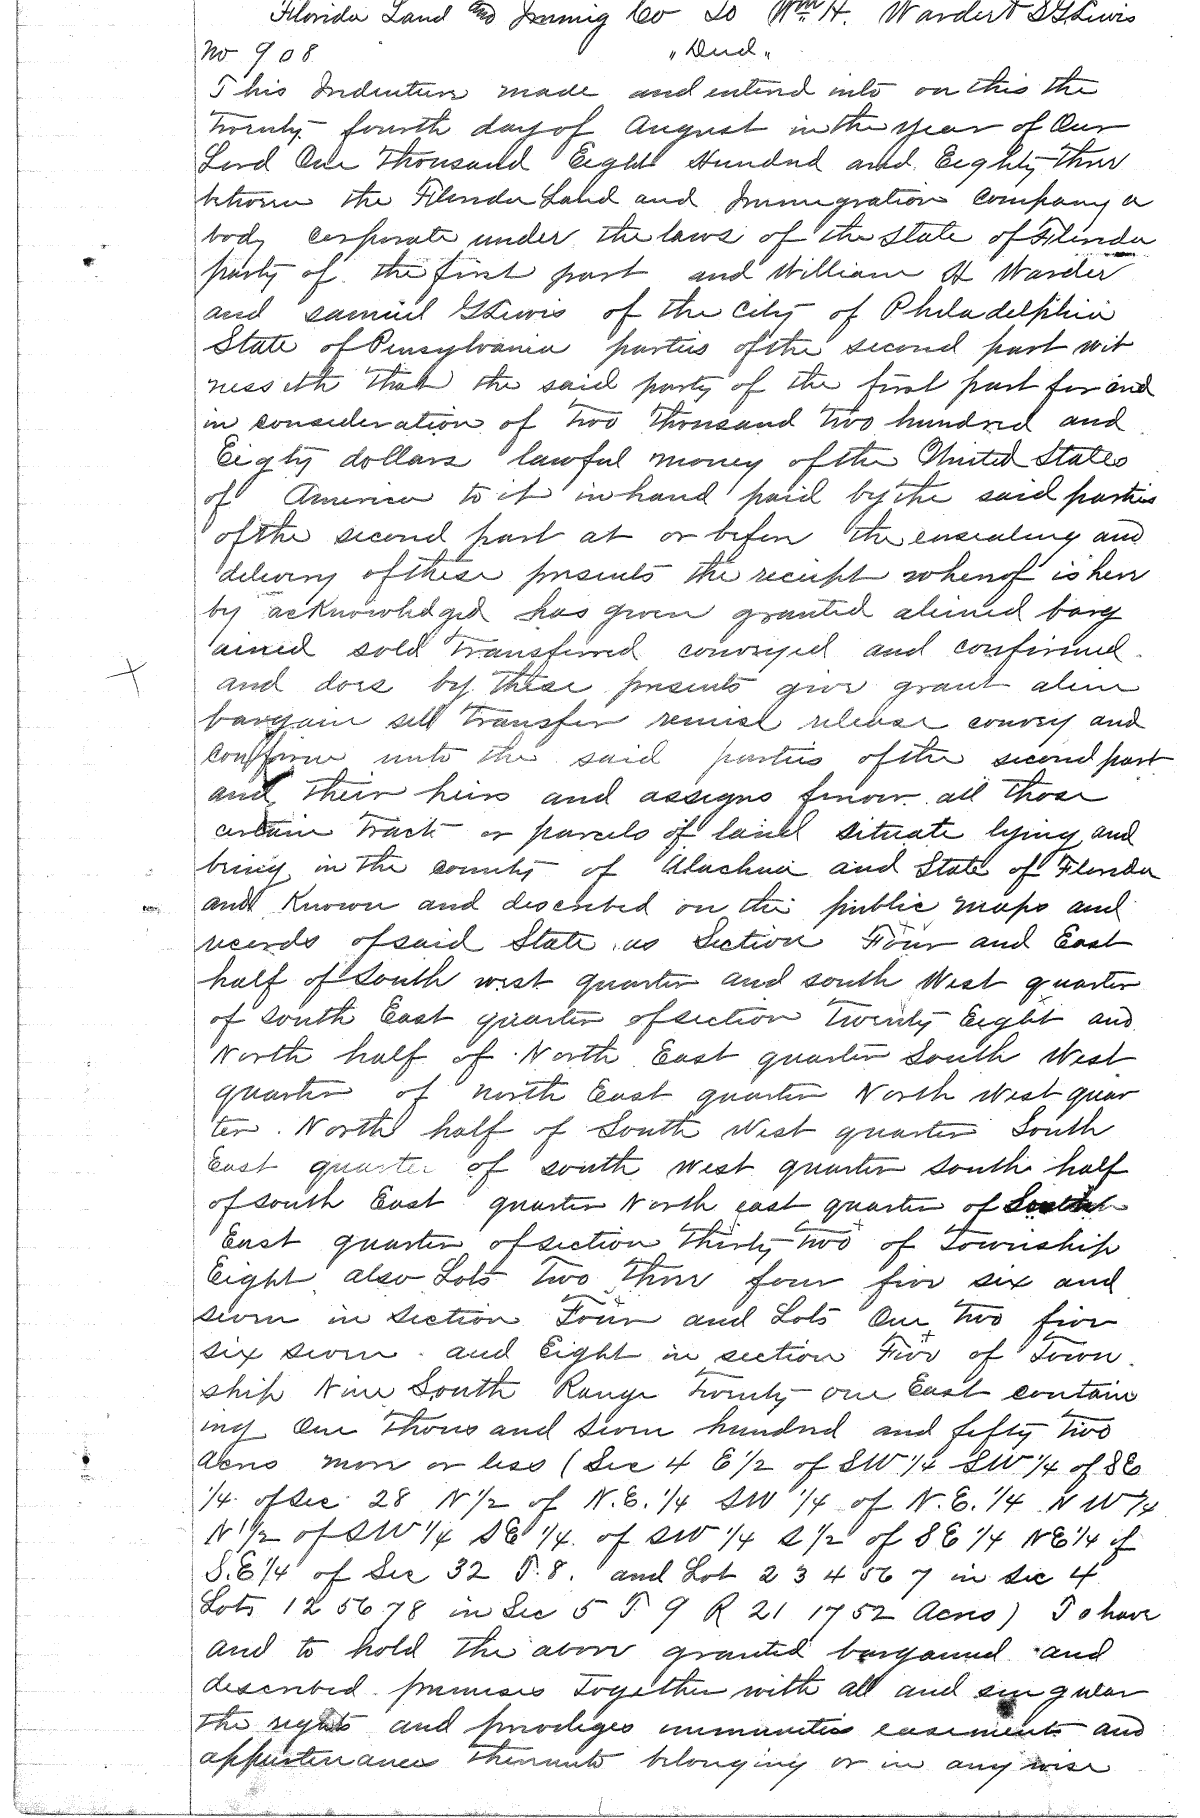 Florida Land and Immig Co To Wm H. Warder & S G Lewis
No 908 "Deed"
This Indenture made and entered into on this the
Twenty fourth day of August in the year of Our
Lord One Thousand Eight Hundred and Eighty Three
between the Florida Land and Immigration Company a
body corporate under the laws of the State of Florida
party of the first part and William H Warder
and Samuel G Lewis of the City of Philadelphia
State of Pensylvania parties of the second part wit
nesseth that the said party of the first part for and
in consideration of Two Thousand Two hundred and
Eigty dollars lawful money of the United States
of America to it in hand paid by the said parties
of the second part at or before the ensealing and
delivery of these presents the receipt whereof is here
by acknowledged has given granted aliened barg
ained sold Transferred conveyed and confirmed
and does by these presents give grant alien
bargain sell transfer remise release convey and
confirm unto the said parties of the second part
and their heirs and assigns forever all those
certain Tract or parcels of land situate lying and
being in the county of Alachua and State of Florida
and Known and described on the public maps and
records of said State as Section Four and East
half of South west quarter and south West quarter
of south East quarter of section Twenty Eight and
North half of North East quarter South West
quarter of north East quarter North West quar
ter North half of South West quarter South
East quarter of south west quarter south half
of south East quarter North east quarter of South
East quarter of section Thirty Two of Township
Eight also Lots Two Three four five six and
seven in section Four and Lots One Two five
six seven and Eight in section Five of Town
ship Nine South Range Twenty one East contain
ing One Thousand seven hundred and fifty Two
Acres more or less (Sec 4 E 1/2 of SW 1/4 SW 1/4 of SE
1/4 of Sec 28 N 1/2 of N.E. 1/4 SW 1/4 of N.E. 1/4 NW 1/4
N 1/2 of SW 1/4 SE 1/4 of SW 1/4 S 1/2 of SE 1/4 NE 1/4 of
S.E 1/4 of Sec 32 T. 8. and Lot 2 3 4 5 6 7 in Sec 4
Lots 1 2 5 6 7 8 in Sec 5 T 9 R 21 1752 Acres) To have
and to hold the above granted bargained and
described premises Together with all and singular
the rights and priviliges immunities easements and
appurtenances thereunto belonging or in any wise